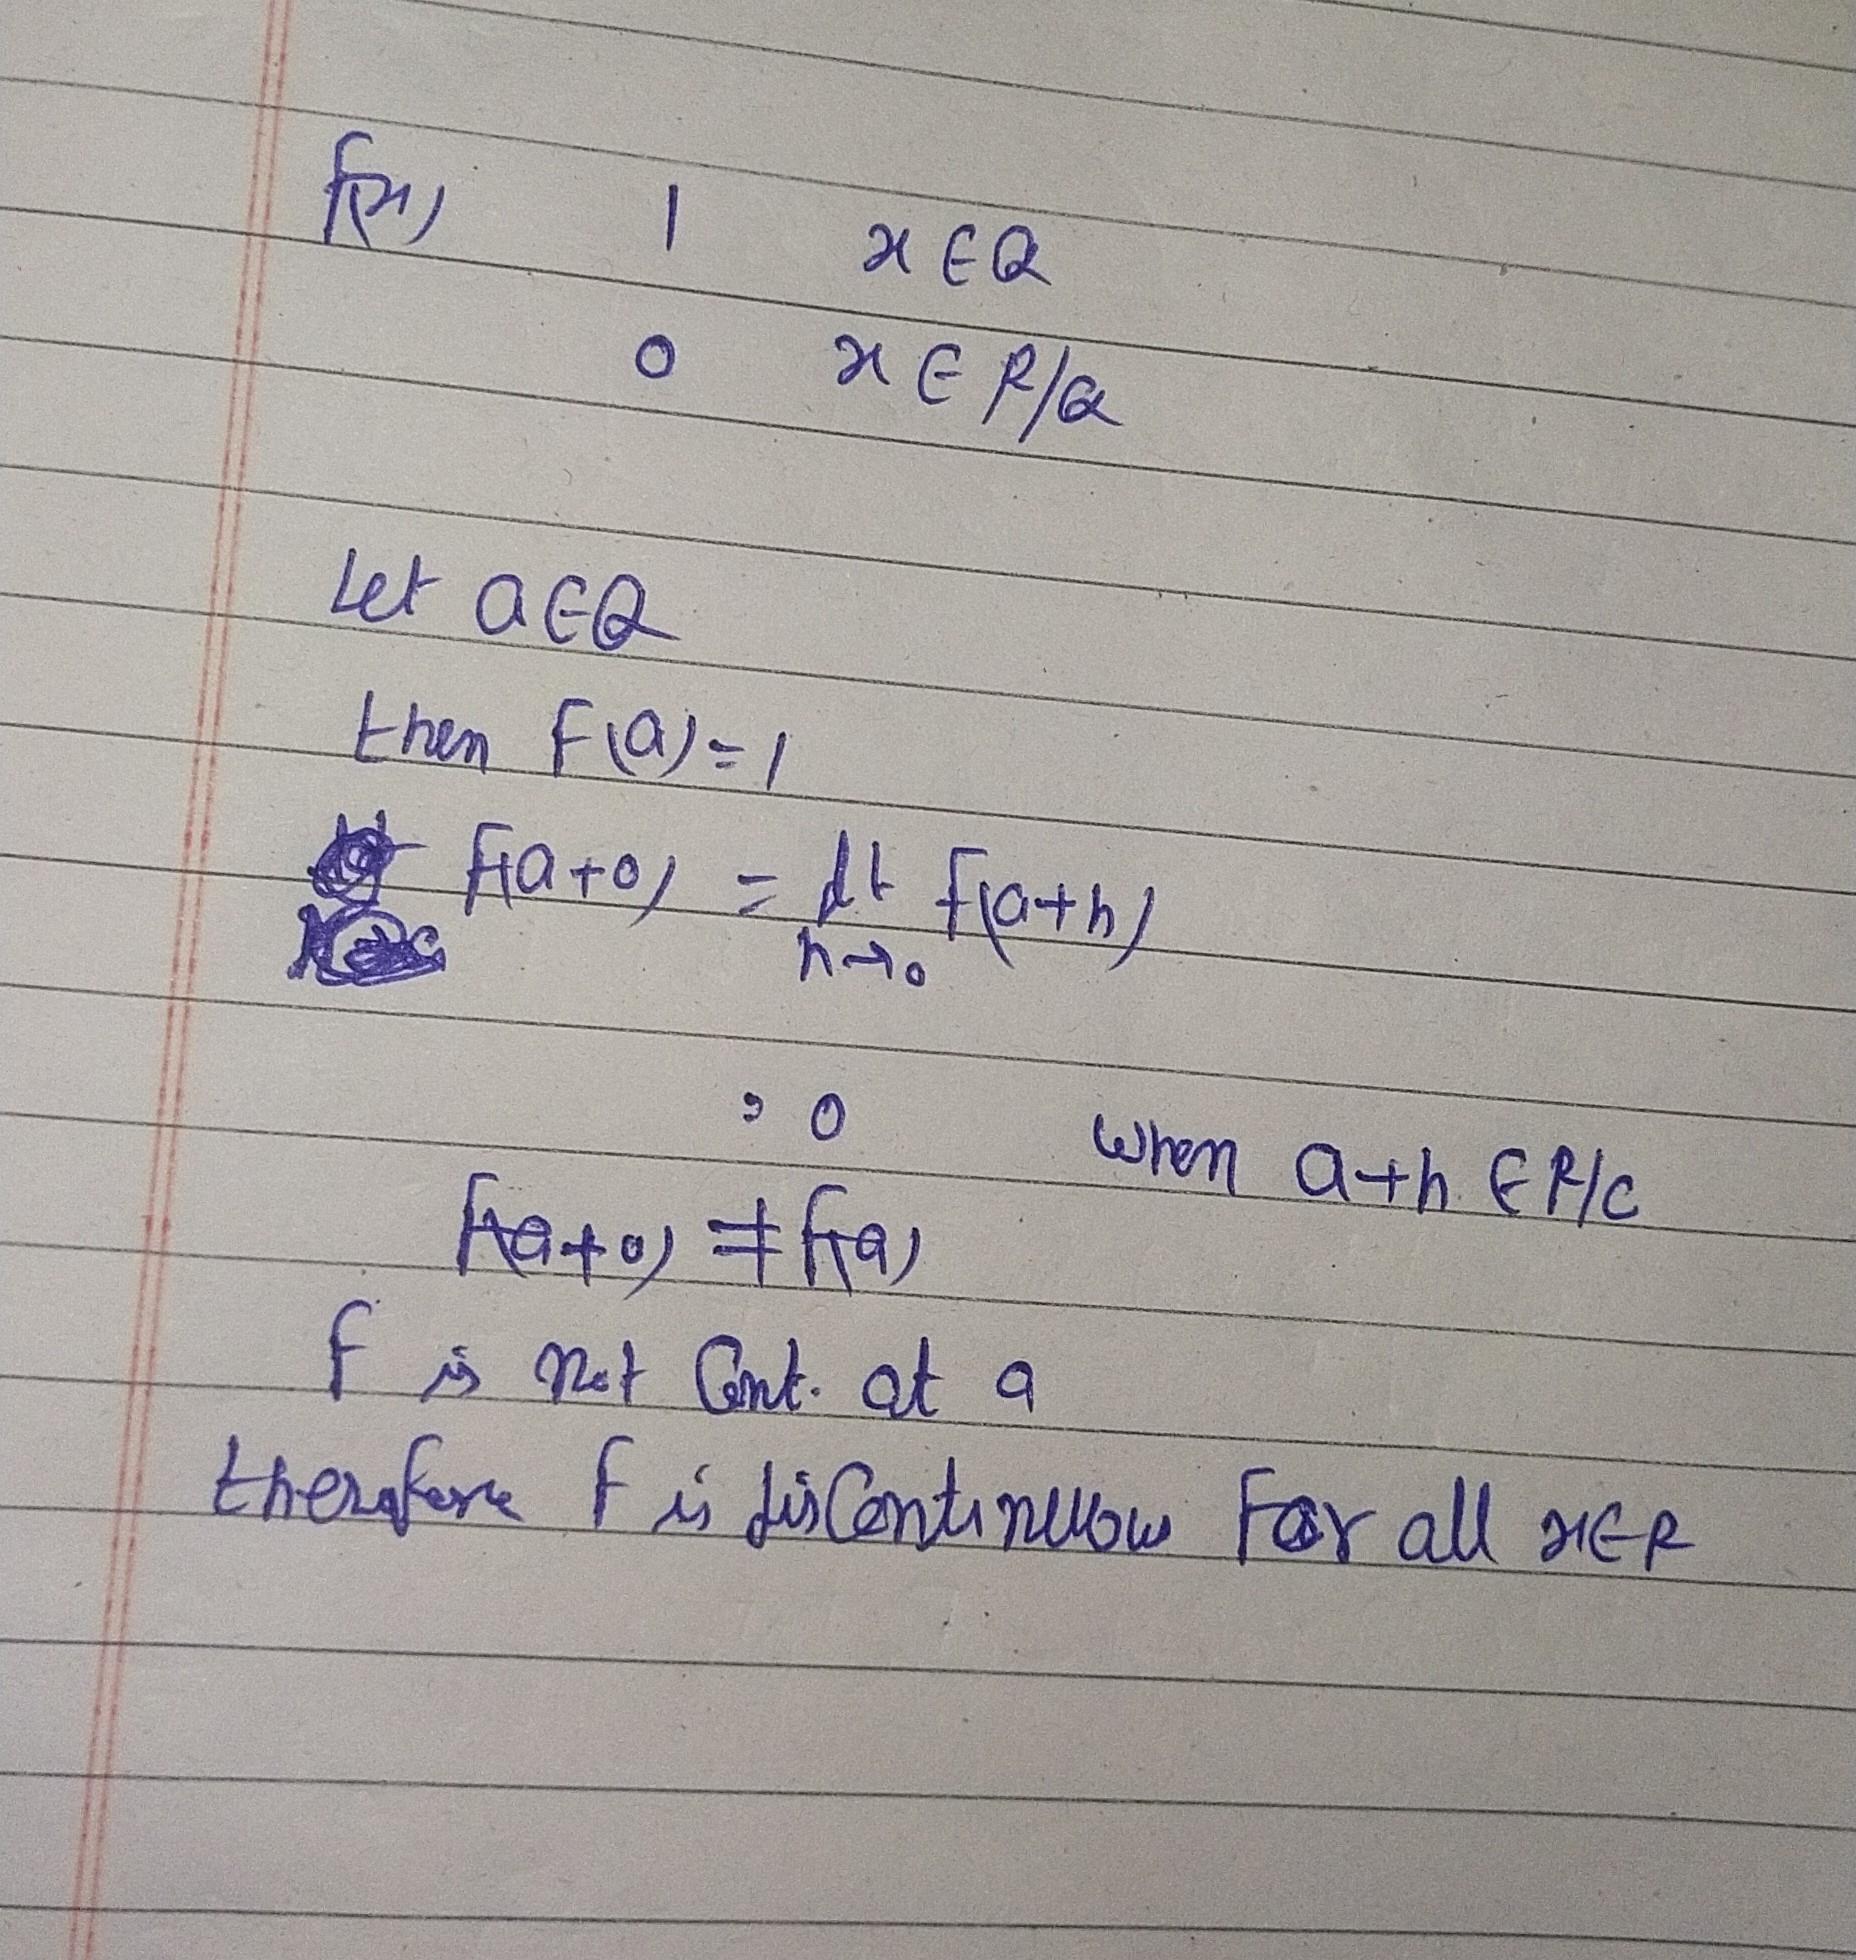 f(x) 1 x ∈ Q
0 x ∈ R/Q
Let a ∈ Q
then f(a) = 1
f(a+0) = lt f(a+h)
h→0
= 0 when a+h ∈ R/C
f(a+0) ≠ f(a)
f is not Cont. at a
therefore f is disContinuous For all x∈R